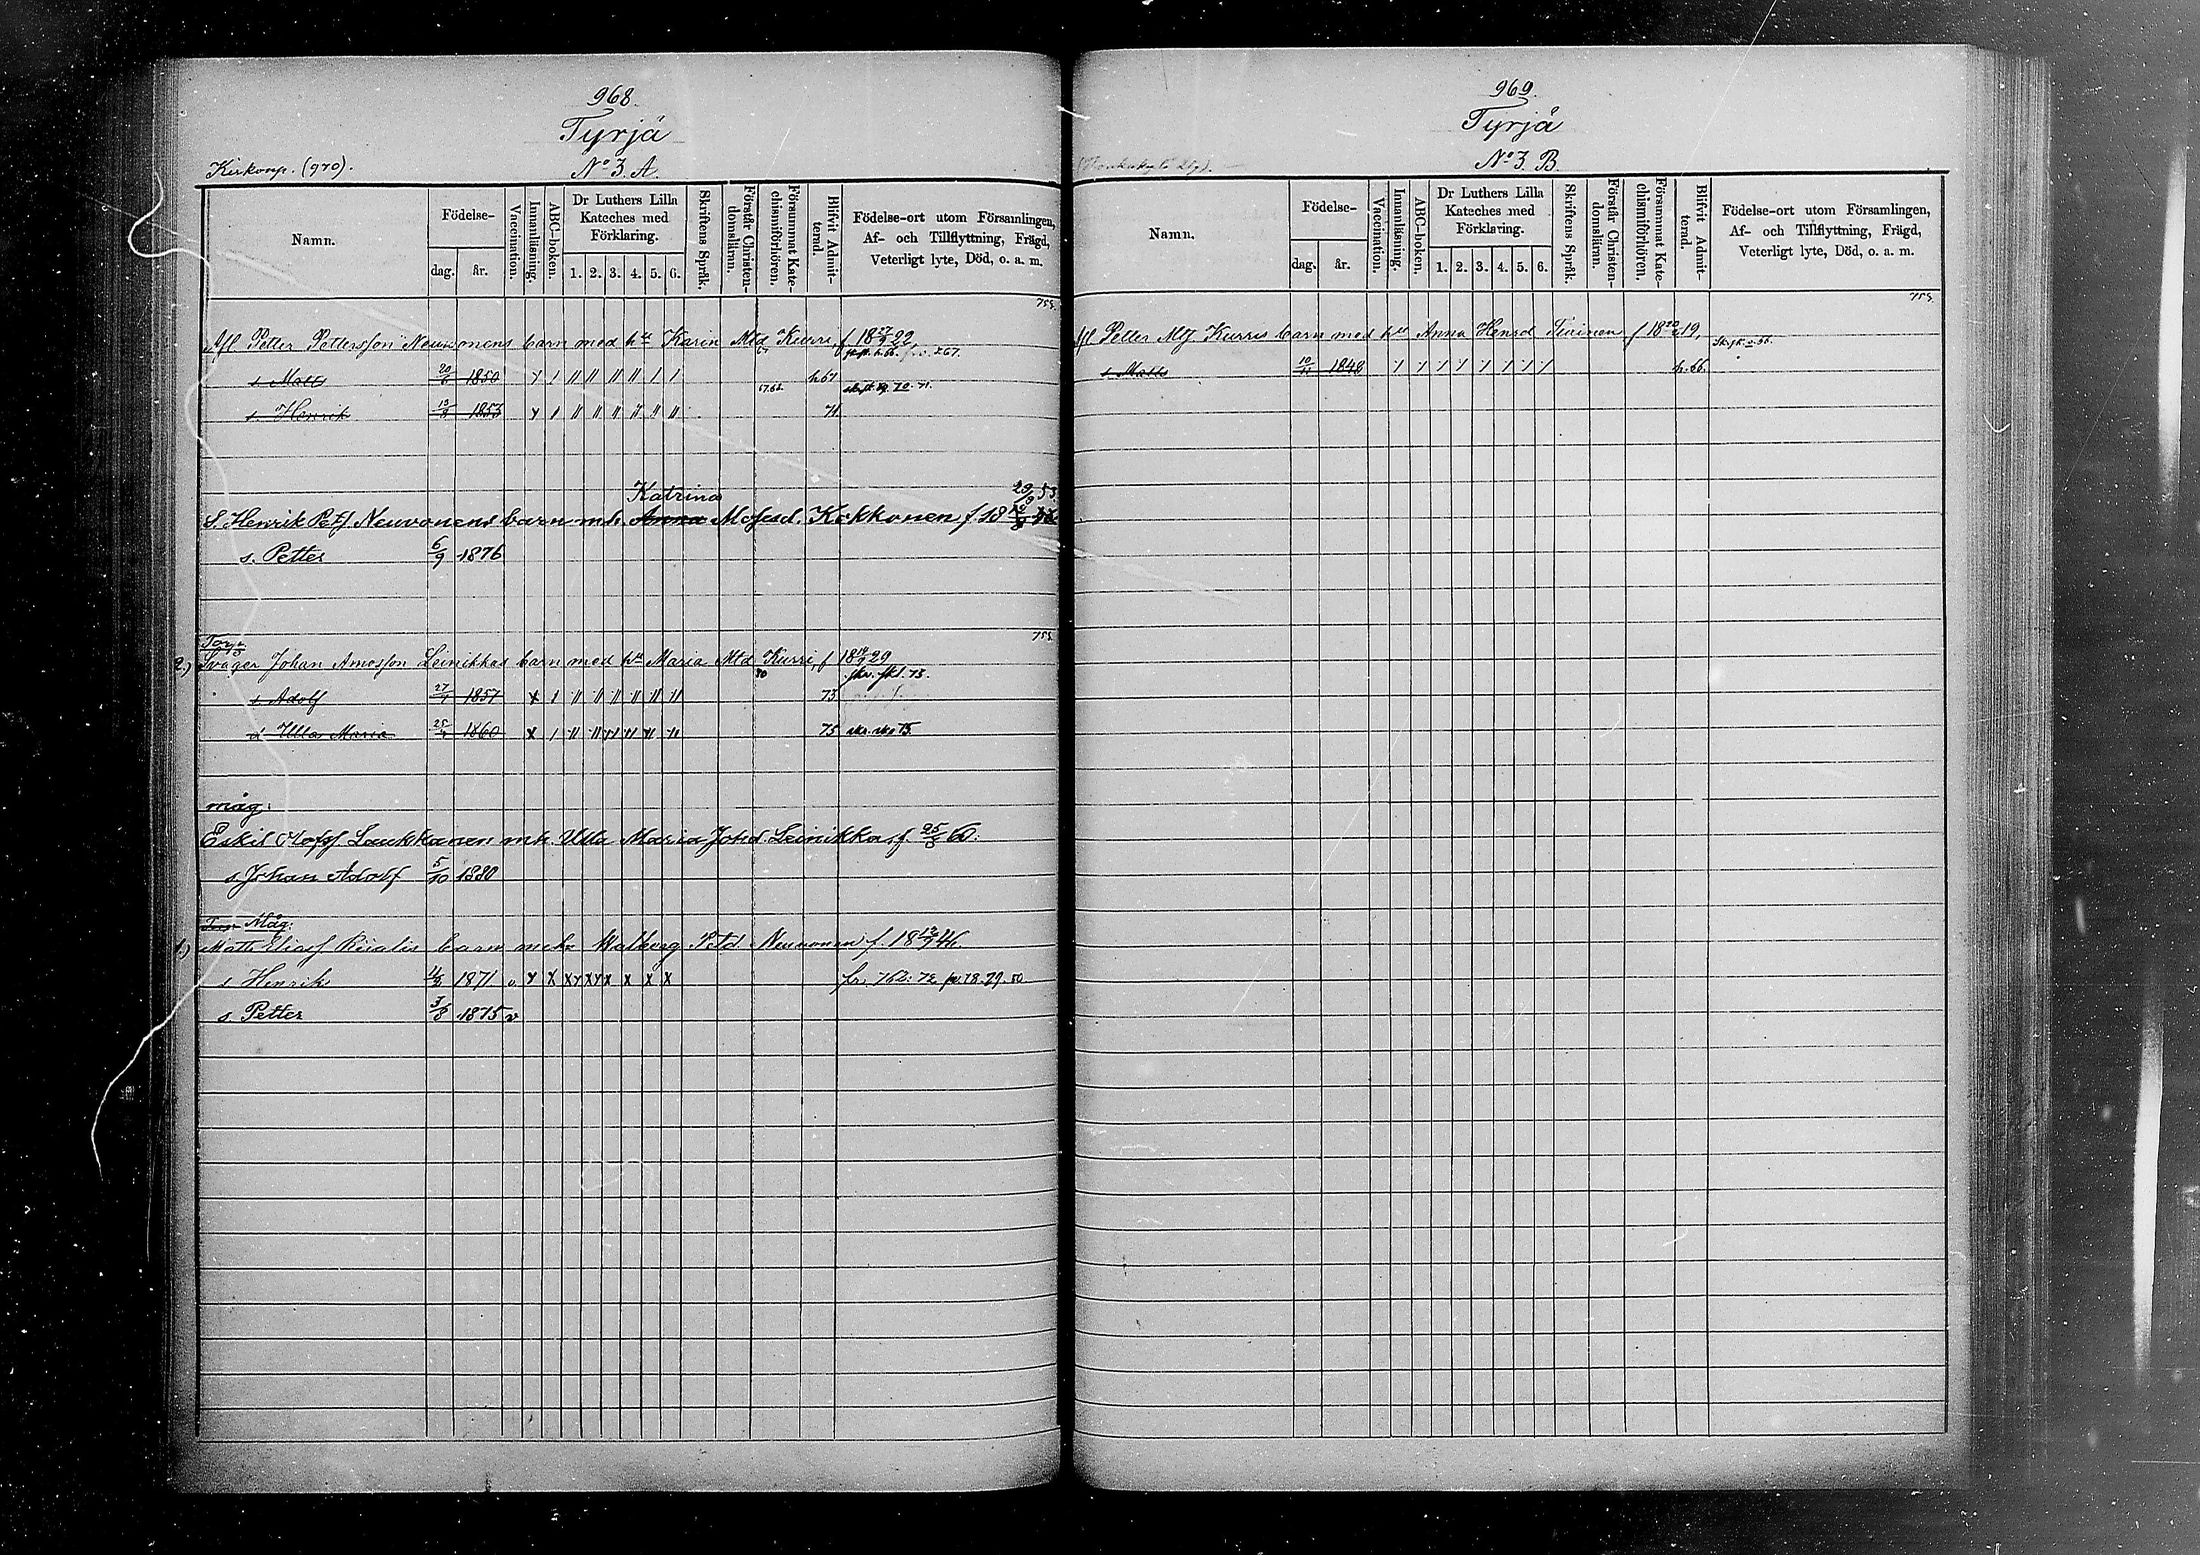 968.
Tyrjä
Kirkonp. (970).
No 3. A.
Namn.
Födelse-
dag.
år.
Vaccination.
Innanläsning.
ABC-boken.
Dr Luthers Lilla Kateches med Förklaring.
1. 2. 3. 4. 5. 6.
Skriftens Språk.
Förstår Christendomsläran.
Försummat Katechismiförhören.
Blifvit Admitterad.
Födelse-ort utom Församlingen, Af- och Tillflyttning, Frägd, Veterligt lyte, Död, o. a. m.
755.
Afl Petter Pettersson Neuvonens barn med hu Karin Mtd Kurri, f 18 27/9 22
s Matts 20/6 1850 h 67
67.68. 70. 71.
s. Henrik 13/8 1853 71
Katrina 29/9 53.
S. Henrik Petf Neuvonens barn m.h. Anna Mosesd. Kokkonen f. 18
s. Petter 6/9 1876
755.
2.) Svåger Johan Amosson Leinikkas barn med hu Maria Mtd Kurri, f 18 29
s Adolf 27/7 1857 73
d Ulla Maria 1860 75
måg:
Eskil Olofsf Laukkanen m.h. Ulla Maria Johd. Leinikka, f. 25/3 60.
s. Johan Adolf 5/10 1880
Måg:
1.) Matts Eliasf barn m. hu Walborg Petd Neuvonen f. 18 46
s Henrik 1871 v. fr. 762: 72 78. 79. 80.
s. Petter 3/8 1875 v
969.
Tyrjä
No 3. B.
Namn.
Födelse-
dag.
år.
Vaccination.
Innanläsning.
ABC-boken.
Dr Luthers Lilla Kateches med Förklaring.
1. 2. 3. 4. 5. 6.
Skriftens Språk.
Förstår Christendomslärn.
Försummat Katechismiförhören.
Blifvit Admitterad.
Födelse-ort utom Församlingen, Af- och Tillflyttning, Frägd, Veterligt lyte, Död, o. a. m.
755.
Afl Petter Mtf Kurris barn med hu Anna Henrd Tiainen f 18 20 19,
s Matts 10/11 1848 h. 66.